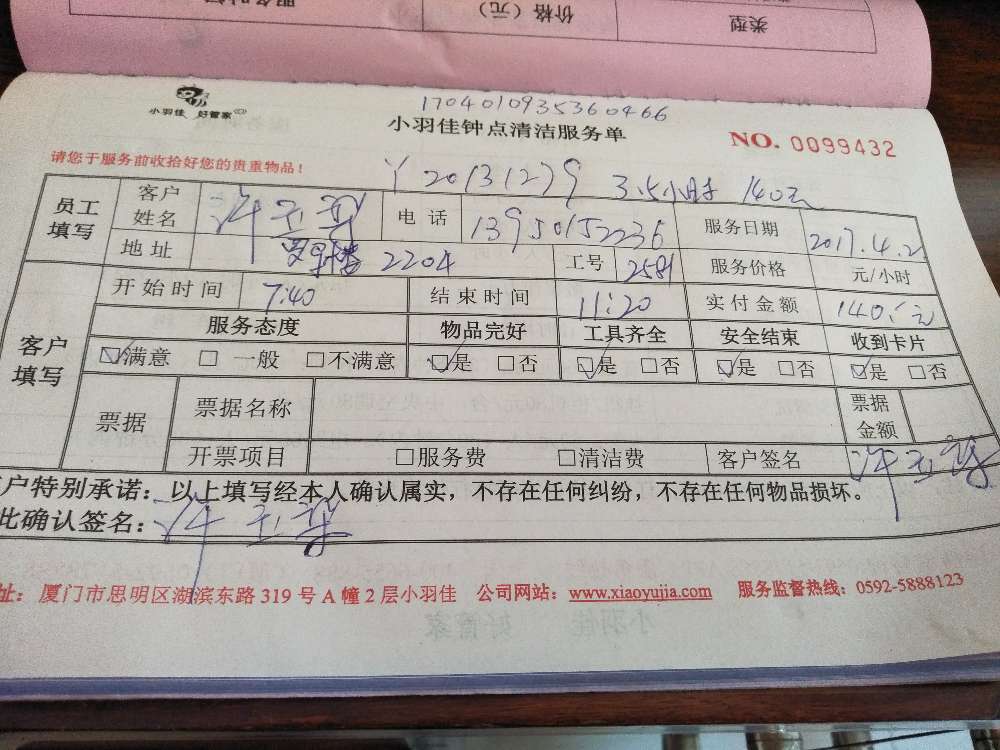 价格（元）
类型
小羽佳 好管家
1704010935360466
小羽佳钟点清洁服务单
NO. 0099432
请您于服务前收拾好您的贵重物品！
20131279 3.5小时 140元
员工填写 客户姓名 电话 13950152236 服务日期 2017.4.2
地址 2204 工号 2581 服务价格 元/小时
开始时间 7:40 结束时间 11:20 实付金额 140元
客户填写 服务态度 物品完好 工具齐全 安全结束 收到卡片
满意 一般 不满意 是 否 是 否 是 否 是 否
票据 票据名称 票据金额
开票项目 服务费 清洁费 客户签名
户特别承诺：以上填写经本人确认属实，不存在任何纠纷，不存在任何物品损坏。
此确认签名：
址：厦门市思明区湖滨东路 319 号 A 幢 2 层小羽佳 公司网站：www.xiaoyujia.com 服务监督热线：0592-5888123